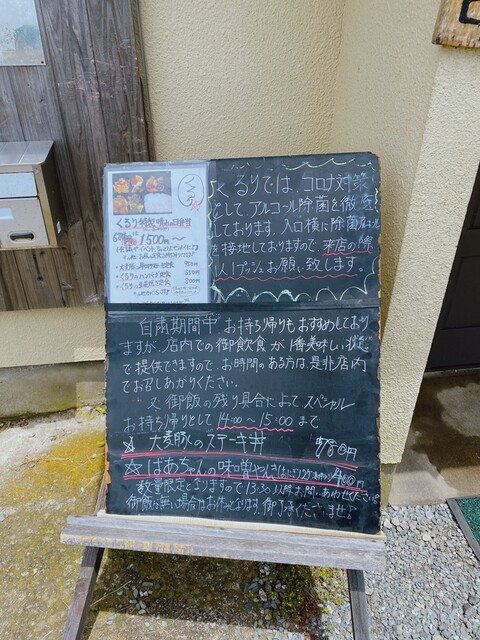 くるり
くるり特製
1500円〜
くるりでは コロナ対策
として、アルコール除菌を徹底
しております。入口横に除菌
を接地しておりますので、来店の際
1人1プッシュお願い致します。
自粛期間中 お持ち帰りもおすすめしており
ますが、店内での御飲食が1番美味しい状態
で提供できますので、お時間のある方は是非店内
でお召しあがりください。
又、御飯の残り具合によって、スペシャル
お持ち帰りとして 14:00〜15:00 まで
☆ 大麦豚のステーキ丼
☆ ばあちゃんの味噌やんき
数量限定となりますので 13:30以降お問いあわせください
御飯が無い場合はお作りなります。御了承くださいませ♪